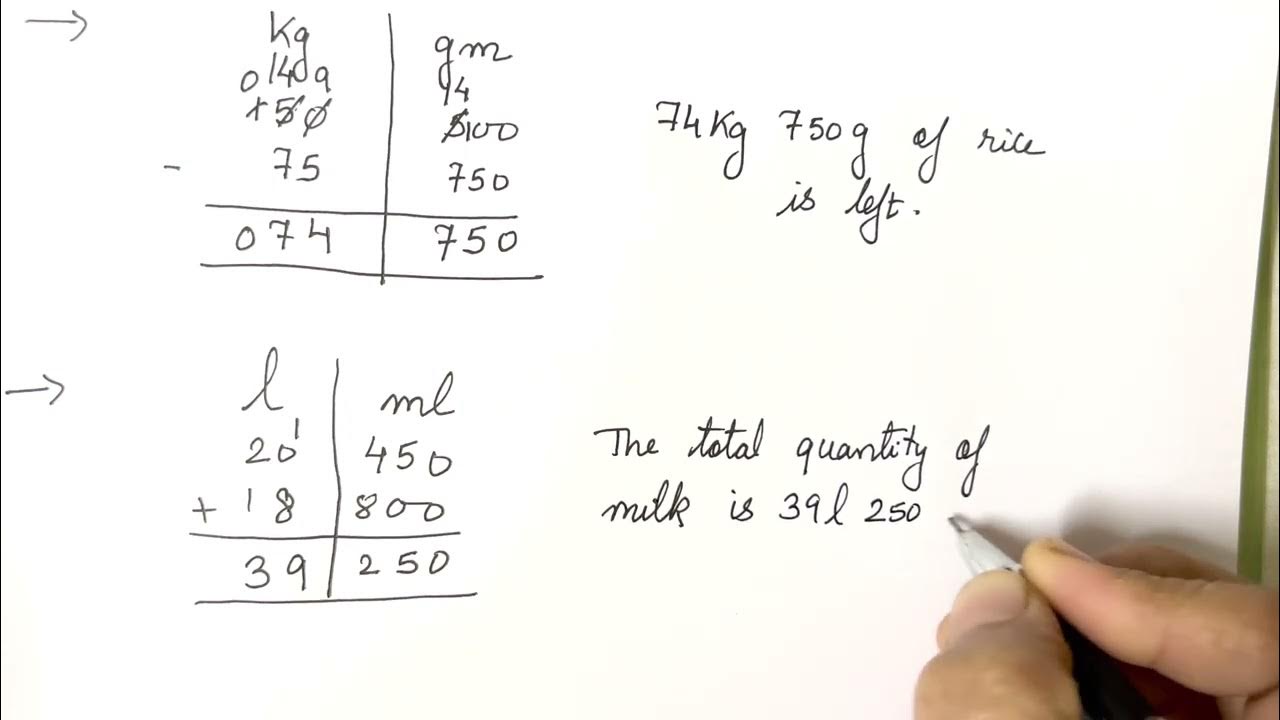 →
Kg | gm
0 14 10 9 | 14
1 5 0 | 5 10 0
- 75 | 750
074 | 750
74Kg 750g of rice
is left.
→
l | ml
20 1 | 450
+ 18 | 800
39 | 250
The total quantity of
milk is 39l 250